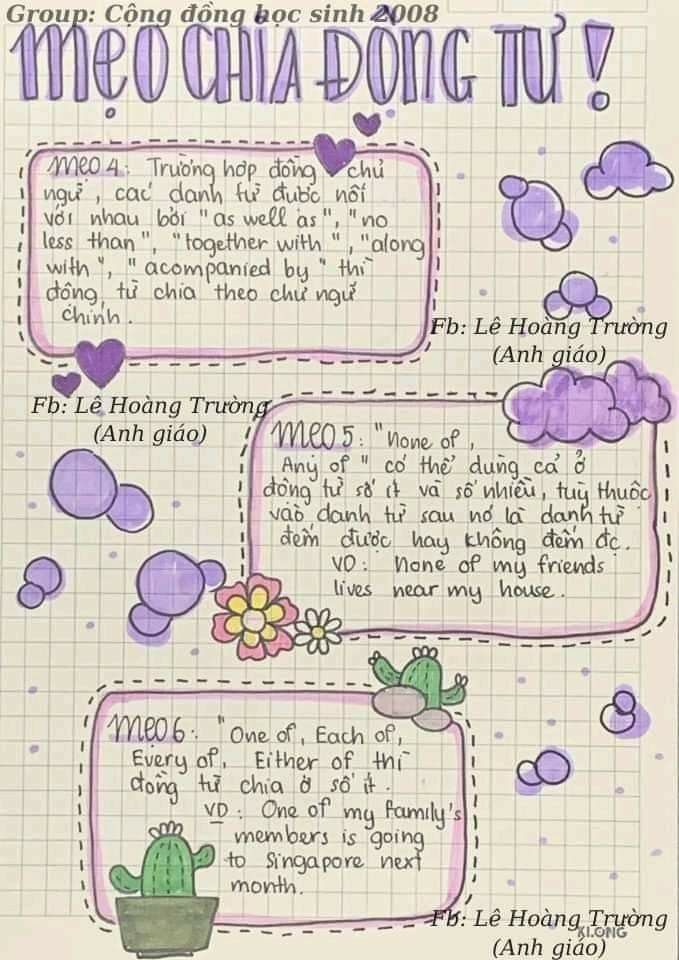 Group: Cộng đồng học sinh 2008
MẸO CHIA ĐỘNG TỪ !
Mẹo 4: Trường hợp đồng chủ
ngữ, các danh từ được nối
với nhau bởi "as well as", "no
less than", "together with", "along
with", "acompanied by" thì
động từ chia theo chủ ngữ
chính.
Fb: Lê Hoàng Trường
(Anh giáo)
Fb: Lê Hoàng Trường
(Anh giáo)
Mẹo 5: "None of,
Any of" có thể dùng cả ở
động từ số ít và số nhiều, tuỳ thuộc
vào danh từ sau nó là danh từ
đếm được hay không đếm đc.
VD: None of my friends
lives near my house.
Mẹo 6: "One of, Each of,
Every of, Either of thì
động từ chia ở số ít.
VD: One of my family's
members is going
to Singapore next
month.
Fb: Lê Hoàng Trường
KI.ONG
(Anh giáo)